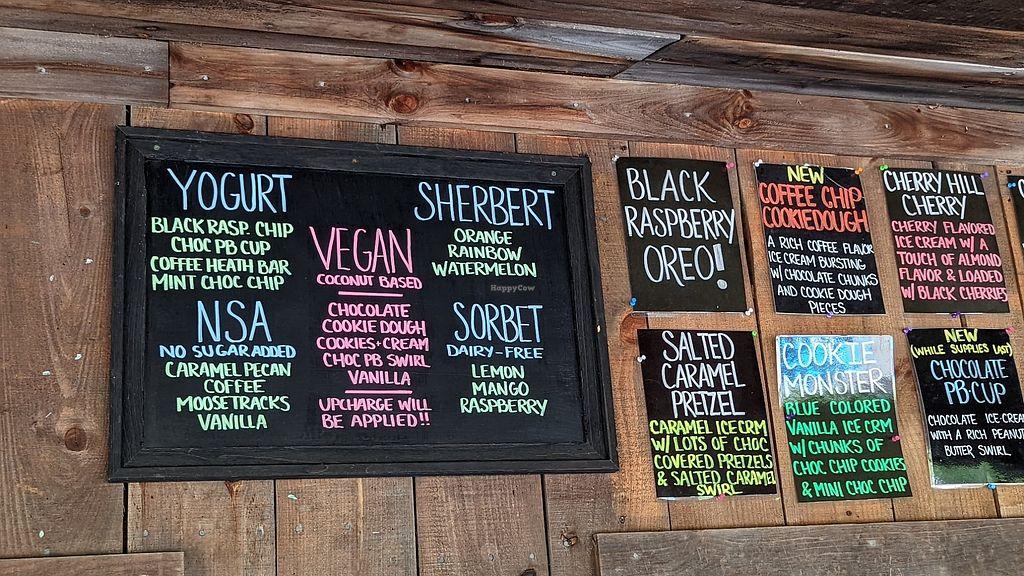 YOGURT
BLACK RASP. CHIP
CHOC PB CUP
COFFEE HEATH BAR
MINT CHOC CHIP
NSA
NO SUGAR ADDED
CARAMEL PECAN
COFFEE
MOOSETRACKS
VANILLA
VEGAN
COCONUT BASED
CHOCOLATE
COOKIE DOUGH
COOKIES+CREAM
CHOC PB SWIRL
VANILLA
UPCHARGE WILL
BE APPLIED!!
SHERBERT
ORANGE
RAINBOW
WATERMELON
HappyCow
SORBET
DAIRY-FREE
LEMON
MANGO
RASPBERRY
BLACK
RASPBERRY
OREO!
NEW
COFFEE CHIP
COOKIEDOUGH
A RICH COFFEE FLAVOR
ICE CREAM BURSTING
W/ CHOCOLATE CHUNKS
AND COOKIE DOUGH
PIECES
CHERRY HILL
CHERRY
CHERRY FLAVORED
ICE CREAM W/ A
TOUCH OF ALMOND
FLAVOR & LOADED
W/ BLACK CHERRIES
SALTED
CARAMEL
PRETZEL
CARAMEL ICE CRM
W/ LOTS OF CHOC
COVERED PRETZELS
& SALTED CARAMEL
SWIRL
COOKIE
MONSTER
BLUE COLORED
VANILLA ICE CRM
W/ CHUNKS OF
CHOC CHIP COOKIES
& MINI CHOC CHIP
NEW
(WHILE SUPPLIES LAST)
CHOCOLATE
PB-CUP
CHOCOLATE ICE-CREAM
WITH A RICH PEANUT
BUTTER SWIRL